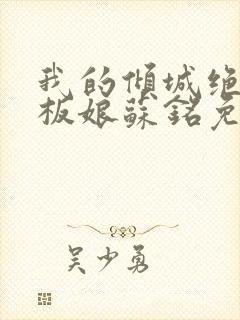 我的倾城绝
板娘蘇銘免
吴少勇